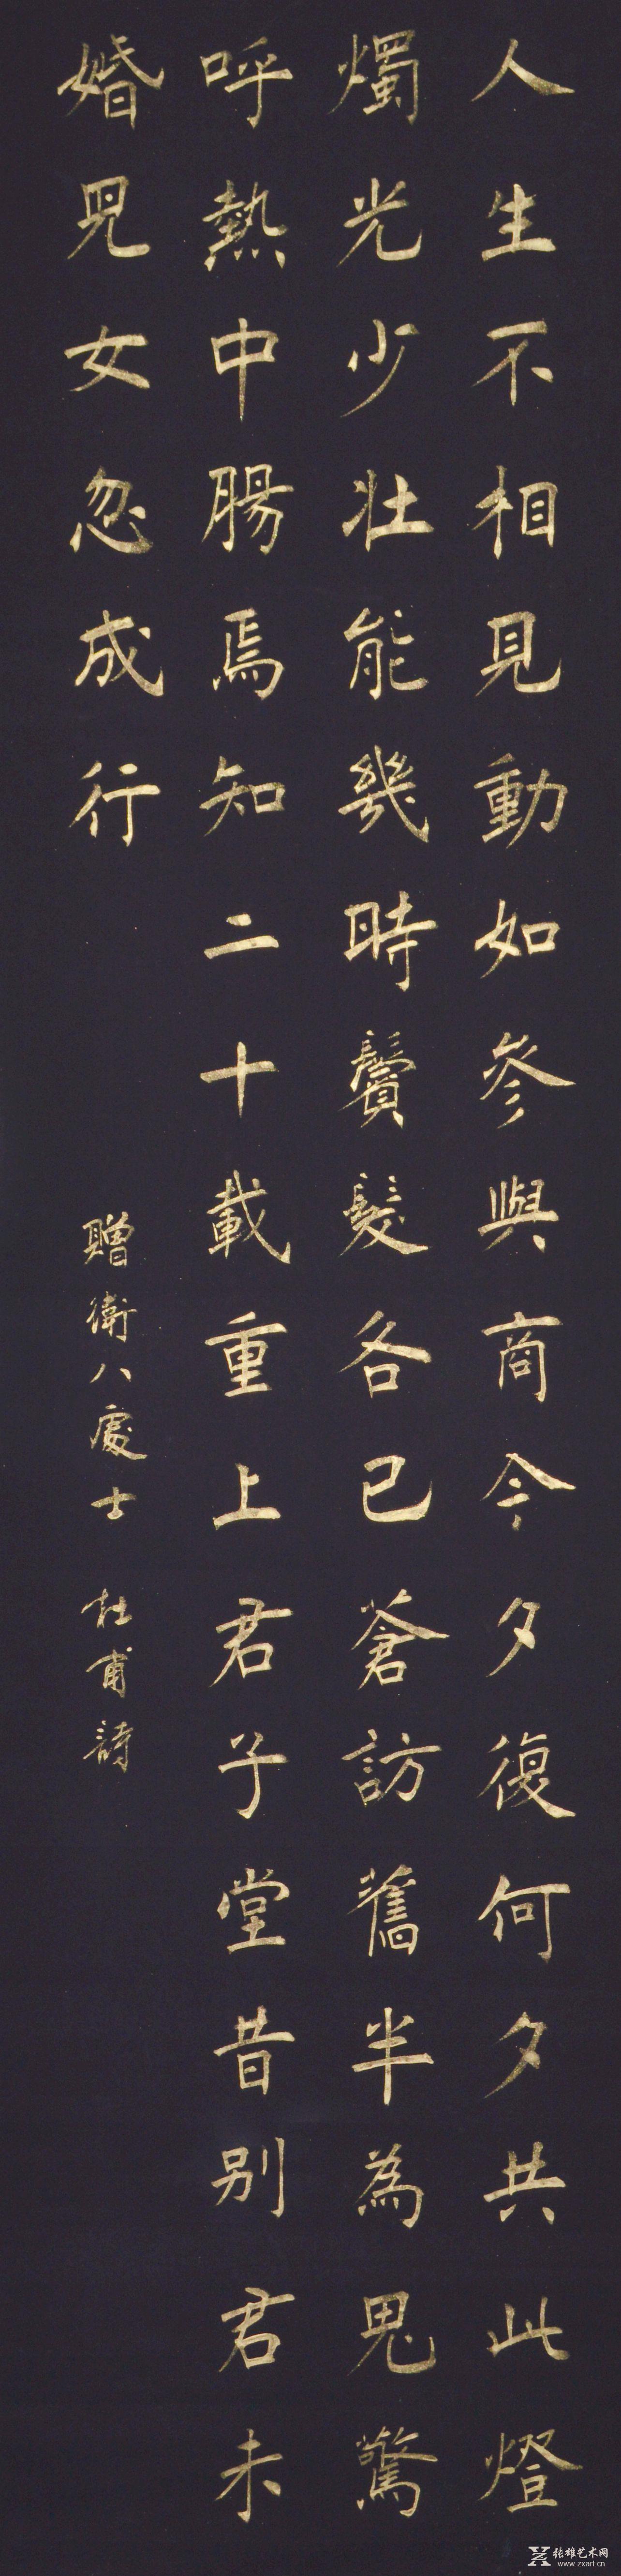 人生不相見動如參與商今夕復何夕共此燈
燭光少壯能幾時鬢髮各已蒼訪舊半為鬼驚
呼熱中腸焉知二十載重上君子堂昔別君未
婚兒女忽成行
贈衛八處士 杜甫詩
张雄艺术网
www.zxart.cn